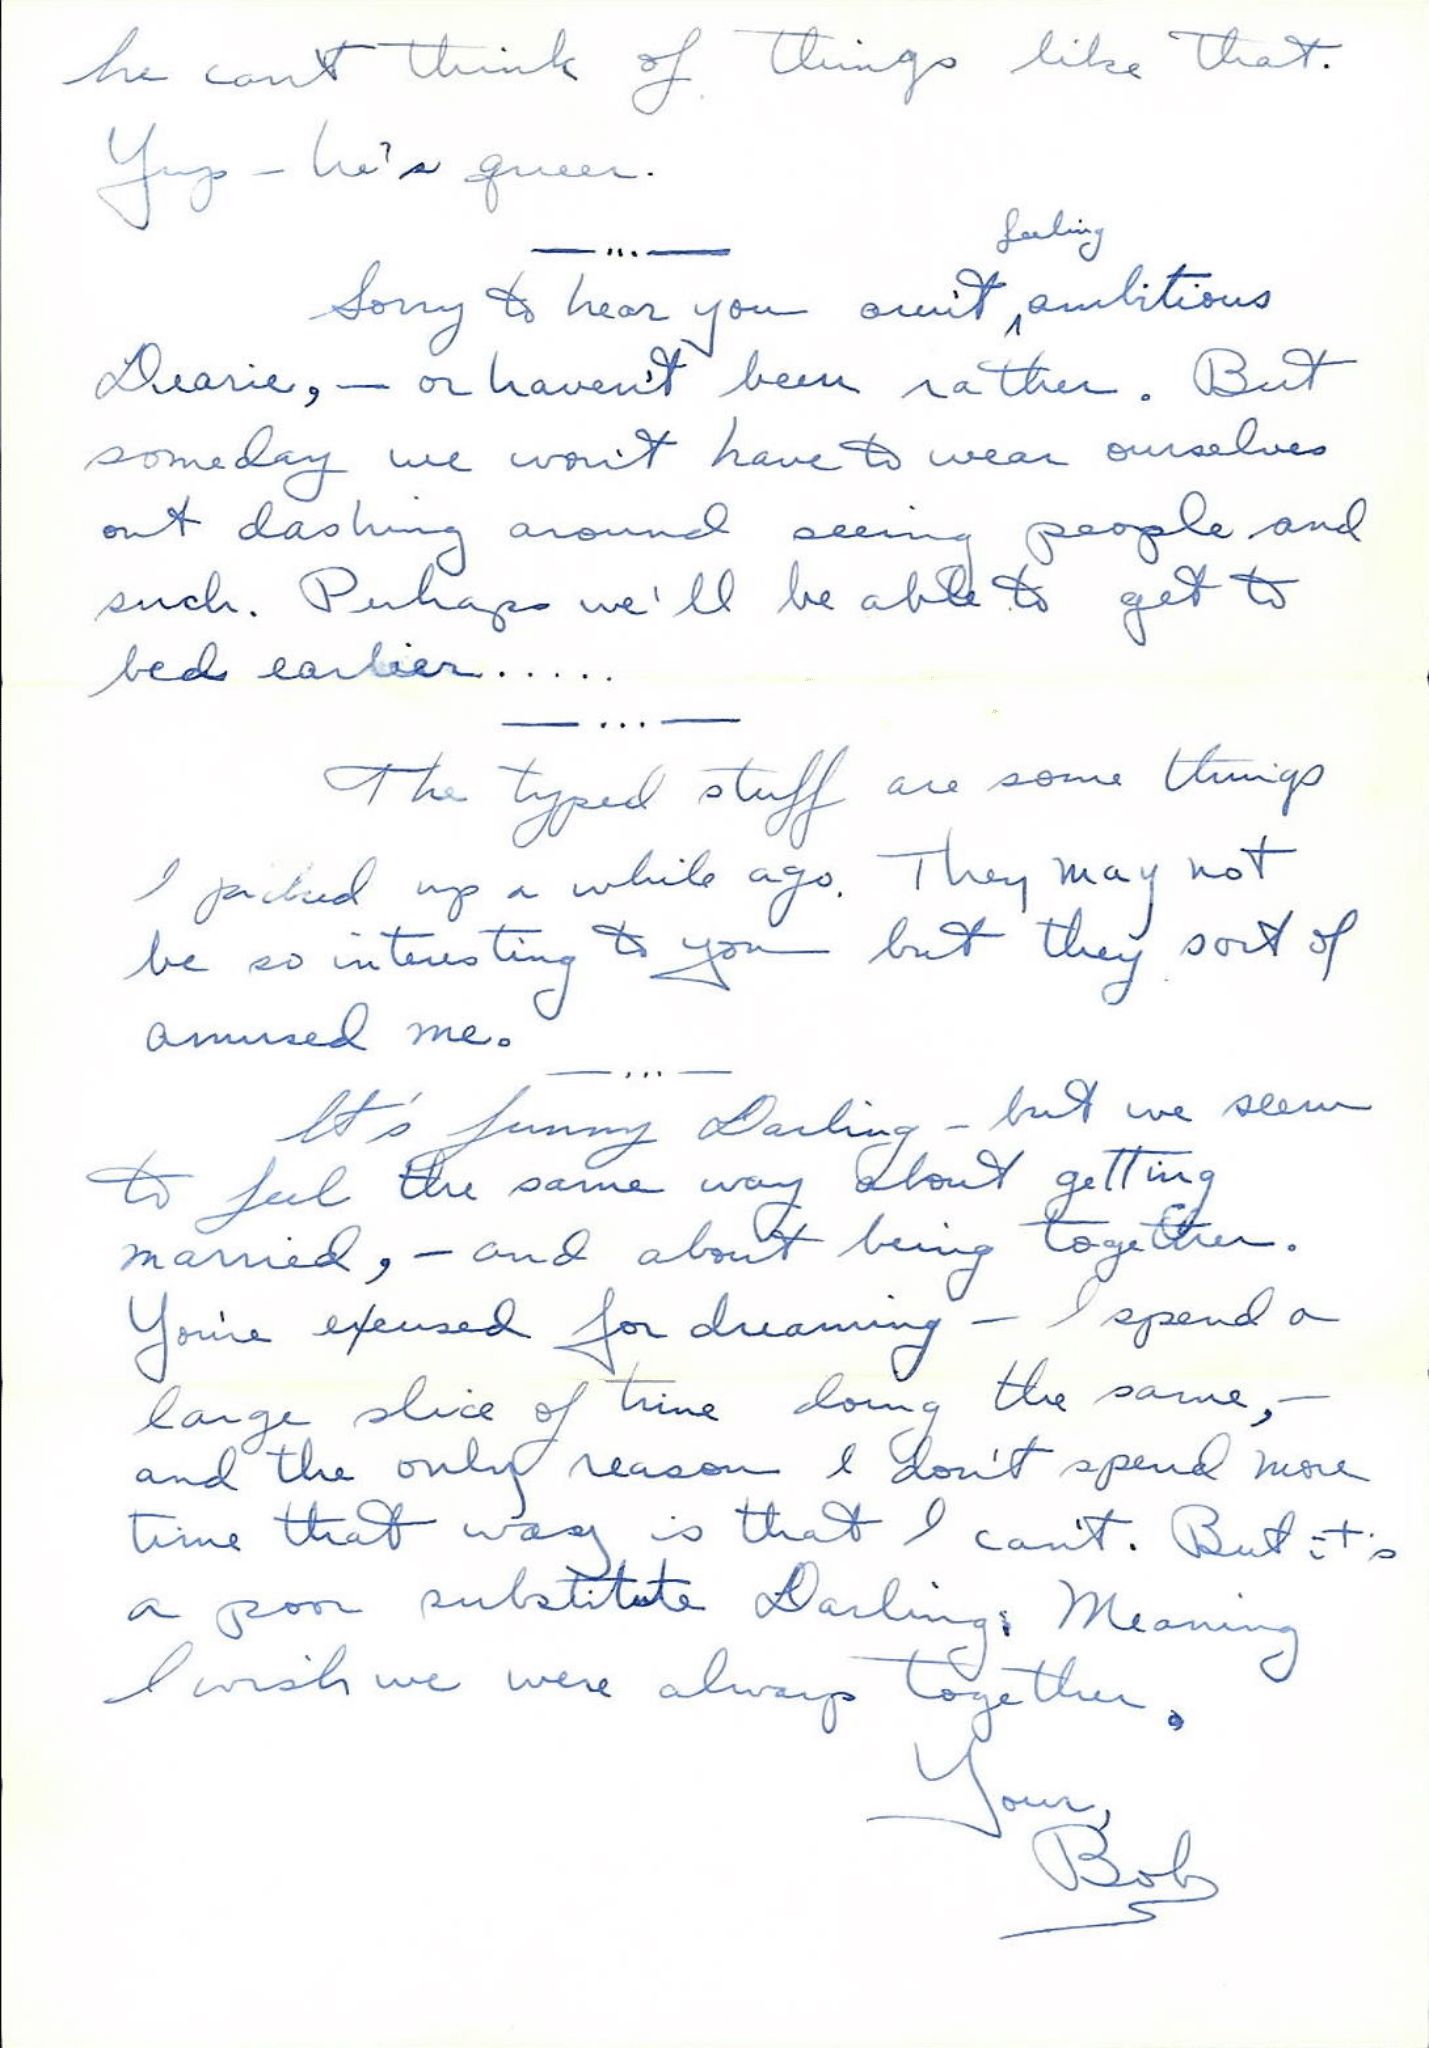 he can't think of things like that.
Yup - he's queer.
—...—
feeling
Sorry to hear you ain't ^ ambitious
Dearie, - or haven't been rather. But
someday we won't have to wear ourselves
out dashing around seeing people and
such. Perhaps we'll be able to get to
bed earlier.....
—...—
The typed stuff are some things
I picked up a while ago. They may not
be so interesting to you but they sort of
amused me.
—...—
It's funny Darling - but we seem
to feel the same way about getting
married, - and about being together.
You're excused for dreaming - I spend a
large slice of time doing the same, -
and the only reason I don't spend more
time that way is that I can't. But it's
a poor substitute Darling. Meaning
I wish we were always together.
Your,
Bob